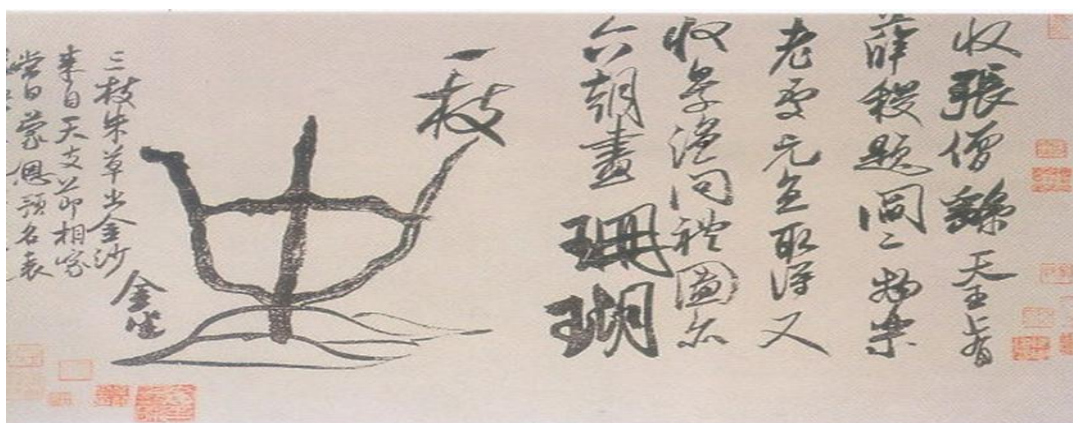 收張僧繇天王上有
薛稷題閻二物樂
老處元直取得又
收景溫問禮圖亦
六朝畫珊瑚
一枝
金坐
三枝朱草出金沙
來自天支節相家
當日蒙恩預名表